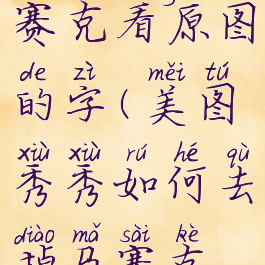 赛克看原图
de zì měi tú
的字(美图
xiù xiù rú hé qù
秀秀如何去
diào mǎ sài kè
掉马赛克